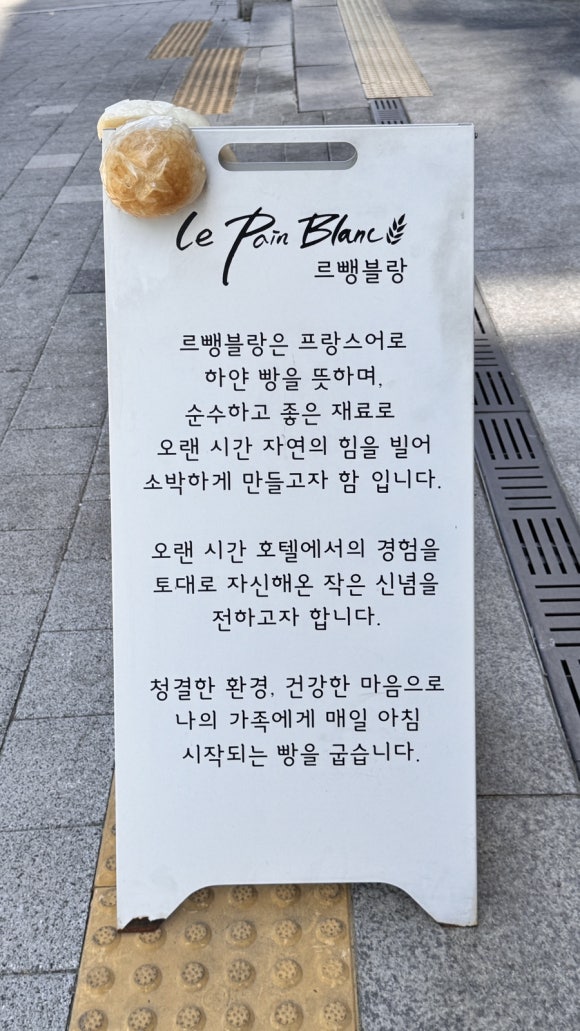 Le Pain Blanc
르뺑블랑
르뺑블랑은 프랑스어로
하얀 빵을 뜻하며,
순수하고 좋은 재료로
오랜 시간 자연의 힘을 빌어
소박하게 만들고자 함 입니다.
오랜 시간 호텔에서의 경험을
토대로 자신해온 작은 신념을
전하고자 합니다.
청결한 환경, 건강한 마음으로
나의 가족에게 매일 아침
시작되는 빵을 굽습니다.